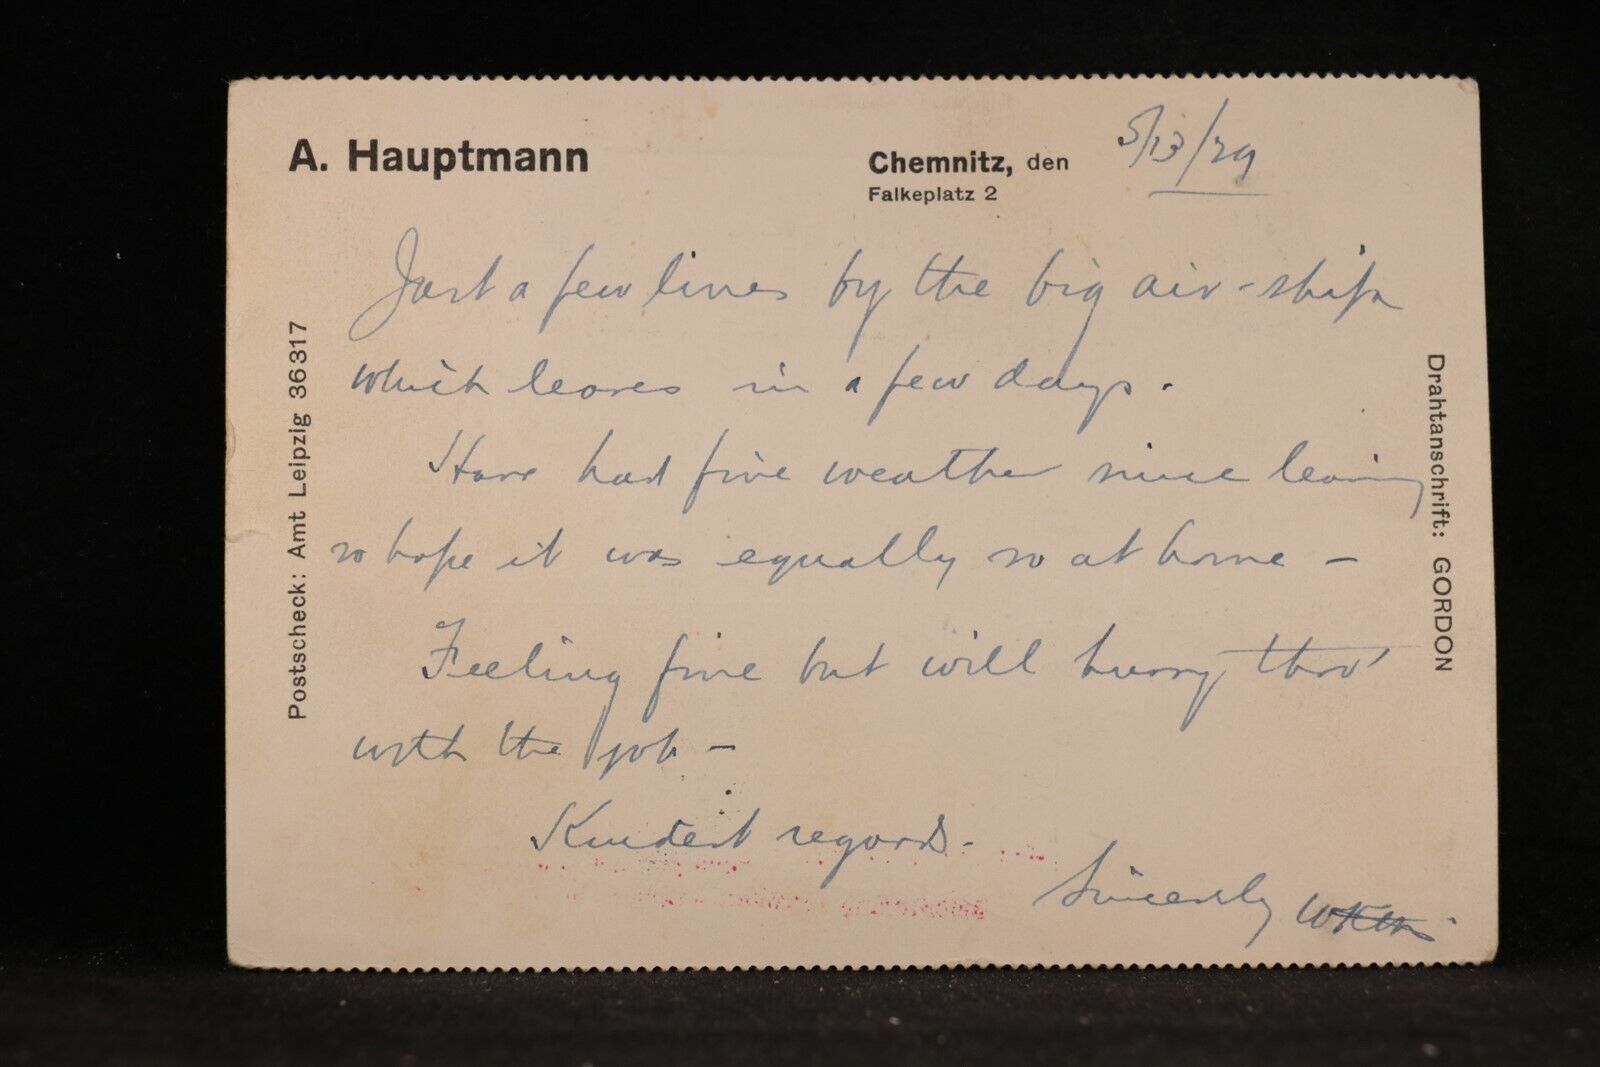 A. Hauptmann
Chemnitz, den 5/13/29
Falkeplatz 2
Postscheck: Amt Leipzig 36317
Drahtanschrift: GORDON
Just a few lines by the big air-ship
which leaves in a few days.
Have had fine weather since leaving
so hope it was equally so at home –
Feeling fine but will hurry thro'
with the job –
Kindest regards.
Sincerely